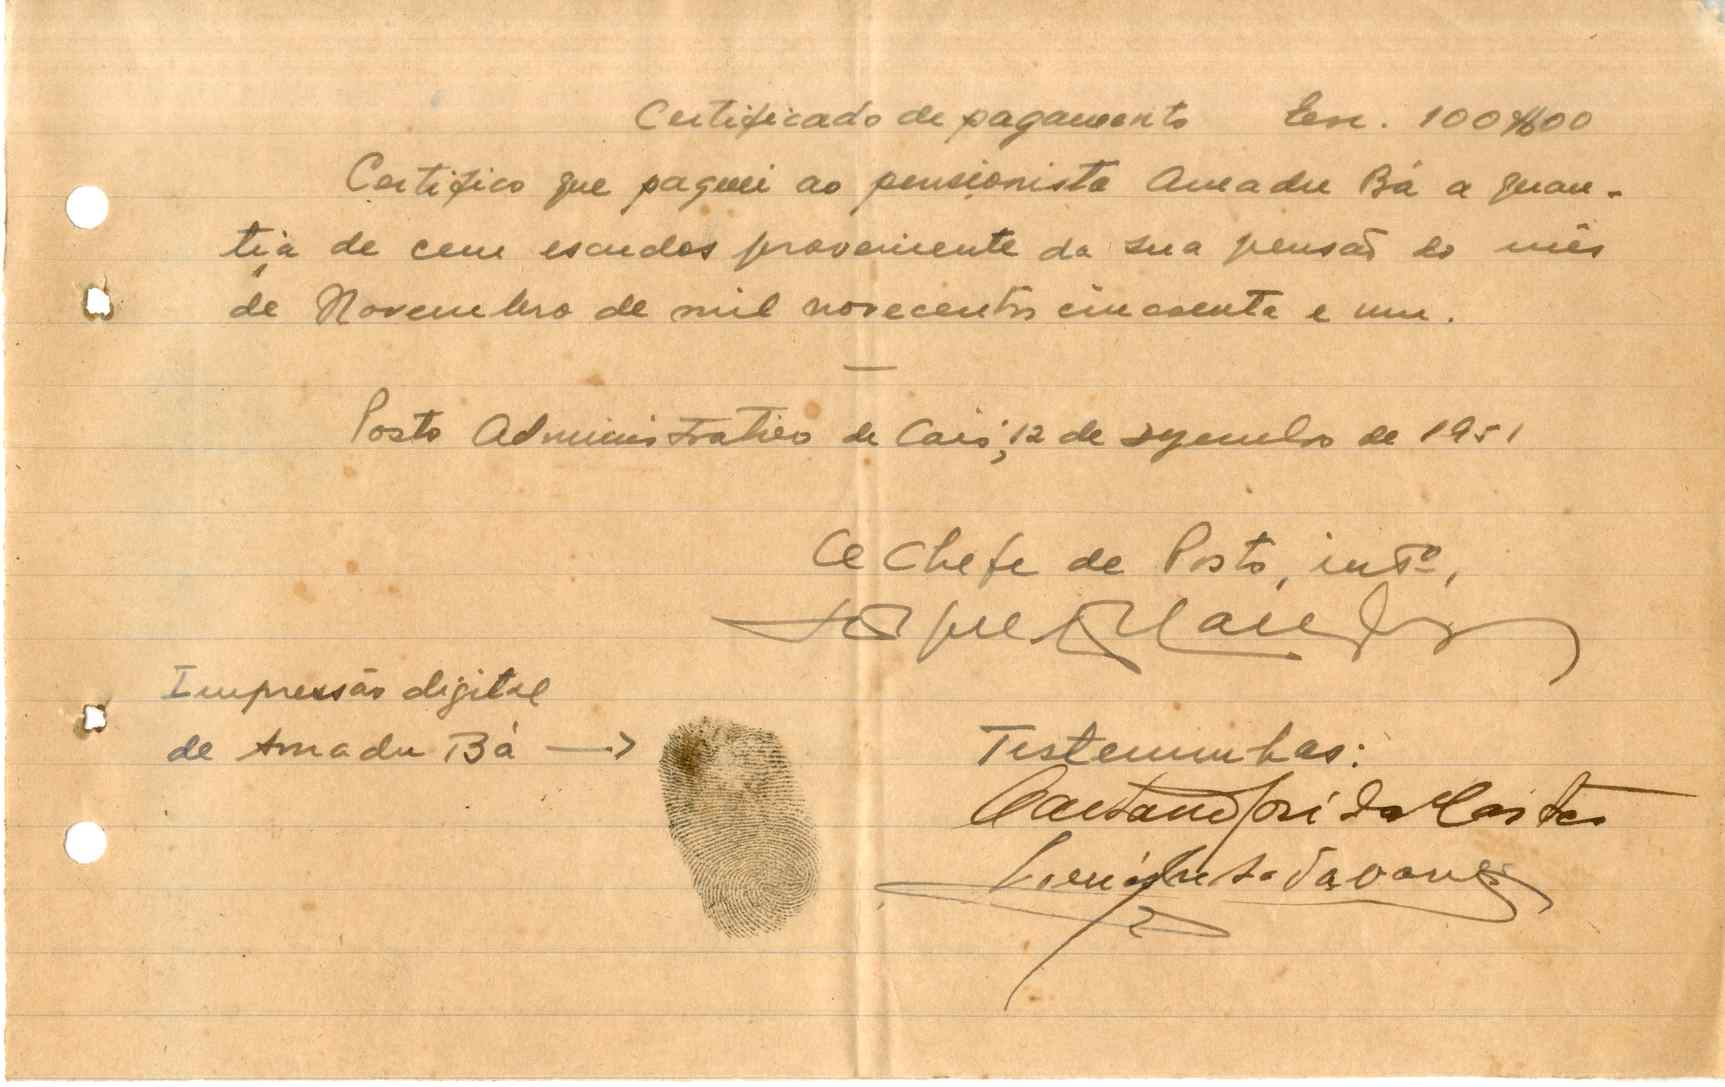 Certificado de pagamento Esc. 100$00
Certifico que paguei ao pensionista Amadu Bá a quan-
tia de cem escudos proveniente da sua pensão do mês
de Novembro de mil novecentos cincoenta e um.
Posto Administrativo de Caió, 12 de Dezembro de 1951
O Chefe de Posto, intº,
Impressão digital
de Amadu Bá →
Testemunhas:
Caetano José da Costa